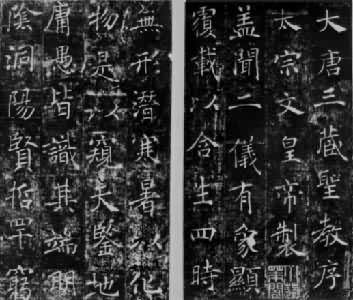 大唐三藏聖教序
太宗文皇帝製
盖聞二儀有象顯
覆載以含生四時
無形潛寒暑以化
物是以窺天鑒地
庸愚皆識其端明
陰洞陽賢哲罕窮